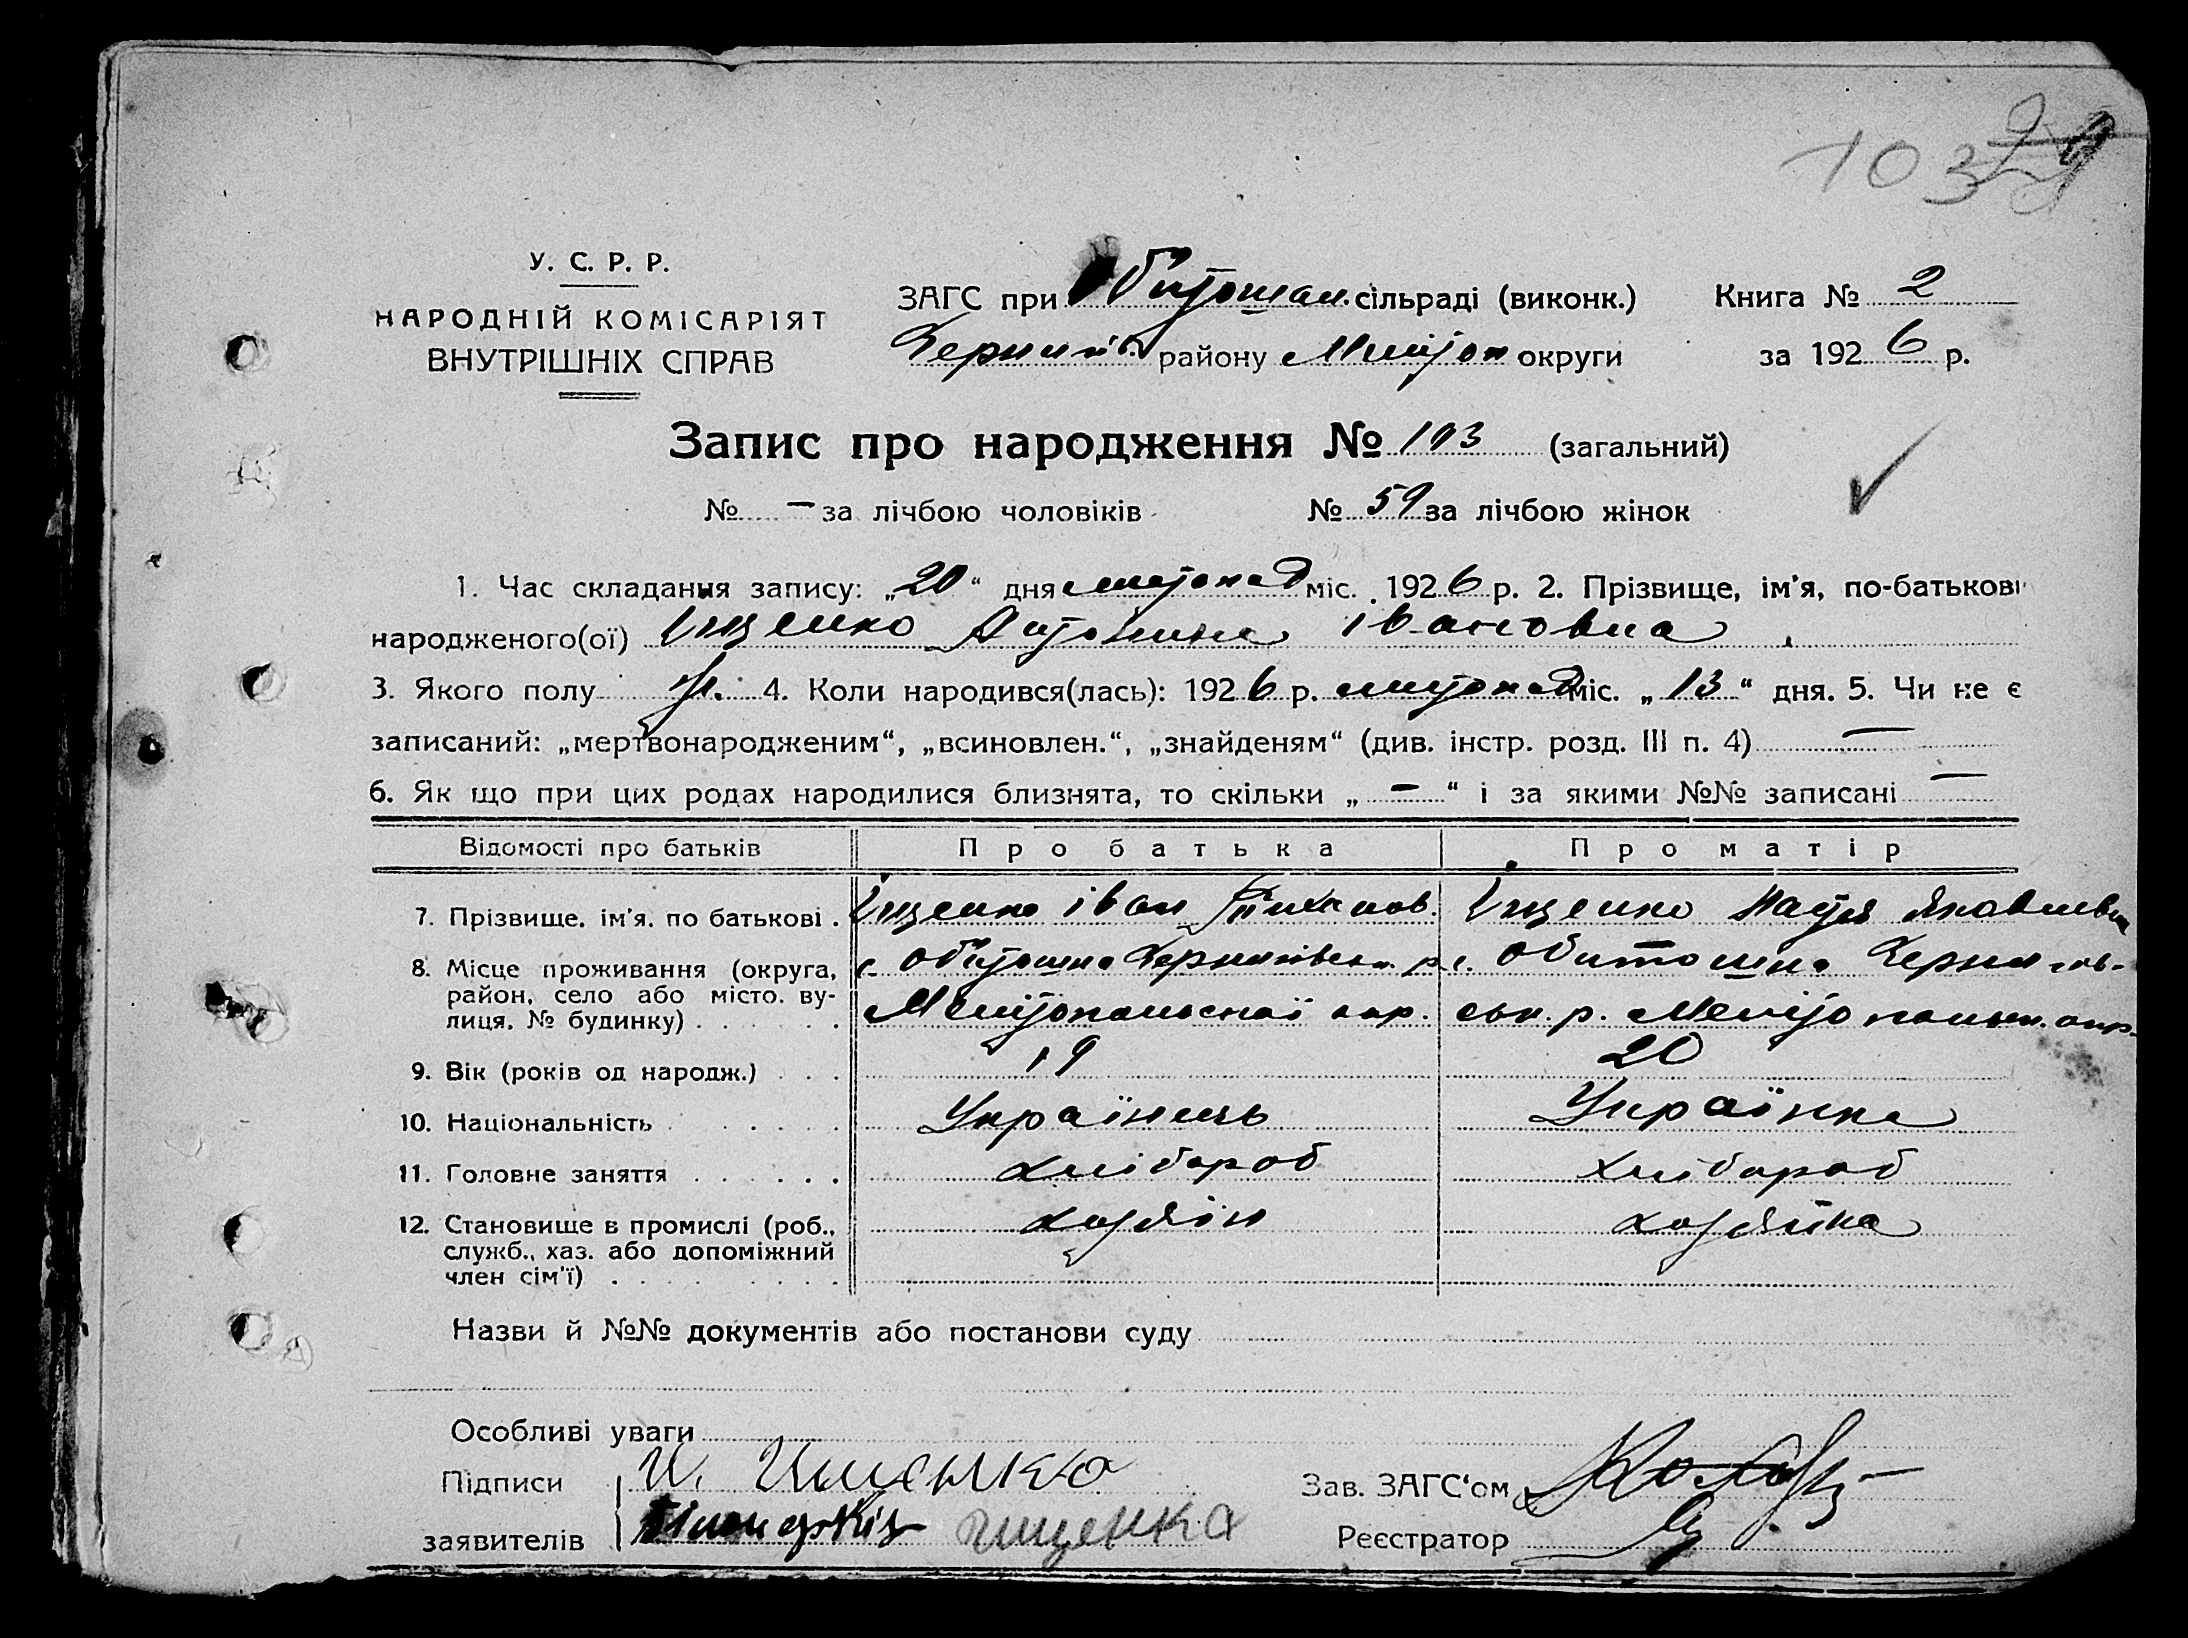 103
У. С. Р. Р.
НАРОДНІЙ КОМІСАРІЯТ
ВНУТРІШНІХ СПРАВ
ЗАГС при Обитошан. сільраді (виконк.) Книга № 2
району округи за 1926 р.
Запис про народження № 103 (загальний)
№ — за лічбою чоловіків № 59 за лічбою жінок
1. Час складання запису: „20“ дня листопад міс. 1926 р. 2. Прізвище, ім'я, по-батькові
народженого(ої) Іщенко Антонина Івановна
3. Якого полу ж. 4. Коли народився(лась): 1926 р. листопад міс. „13“ дня. 5. Чи не є
записаний: „мертвонародженим“, „всиновлен.“, „знайденям“ (див. інстр. розд. III п. 4) —
6. Як що при цих родах народилися близнята, то скільки „—“ і за якими №№ записані —
Відомості про батьків Про батька Про матір
7. Прізвище, ім'я, по батькові . Іщенко Іван Іщенко Яковлевна
8. Місце проживання (округа, с. Обитошне р. с. Обитошне Чернигов-
район, село або місто, ву-
лиця, № будинку) . . . . . . Мелітопольської окр. ськ. р. Мелітопольськ. окр.
9. Вік (років од народж.) . . . 19 20
10. Національність . . . . . . Українець Українка
11. Головне заняття . . . . . . хлібороб хлібороб
12. Становище в промислі (роб., хазяїн хазяйка
служб., хаз. або допоміжний
член сім'ї) . . . . . . . . .
Назви й №№ документів або постанови суду
Особливі уваги
Підписи И. Ищенко Зав. ЗАГС'ом
заявителів Ищенка Реєстратор